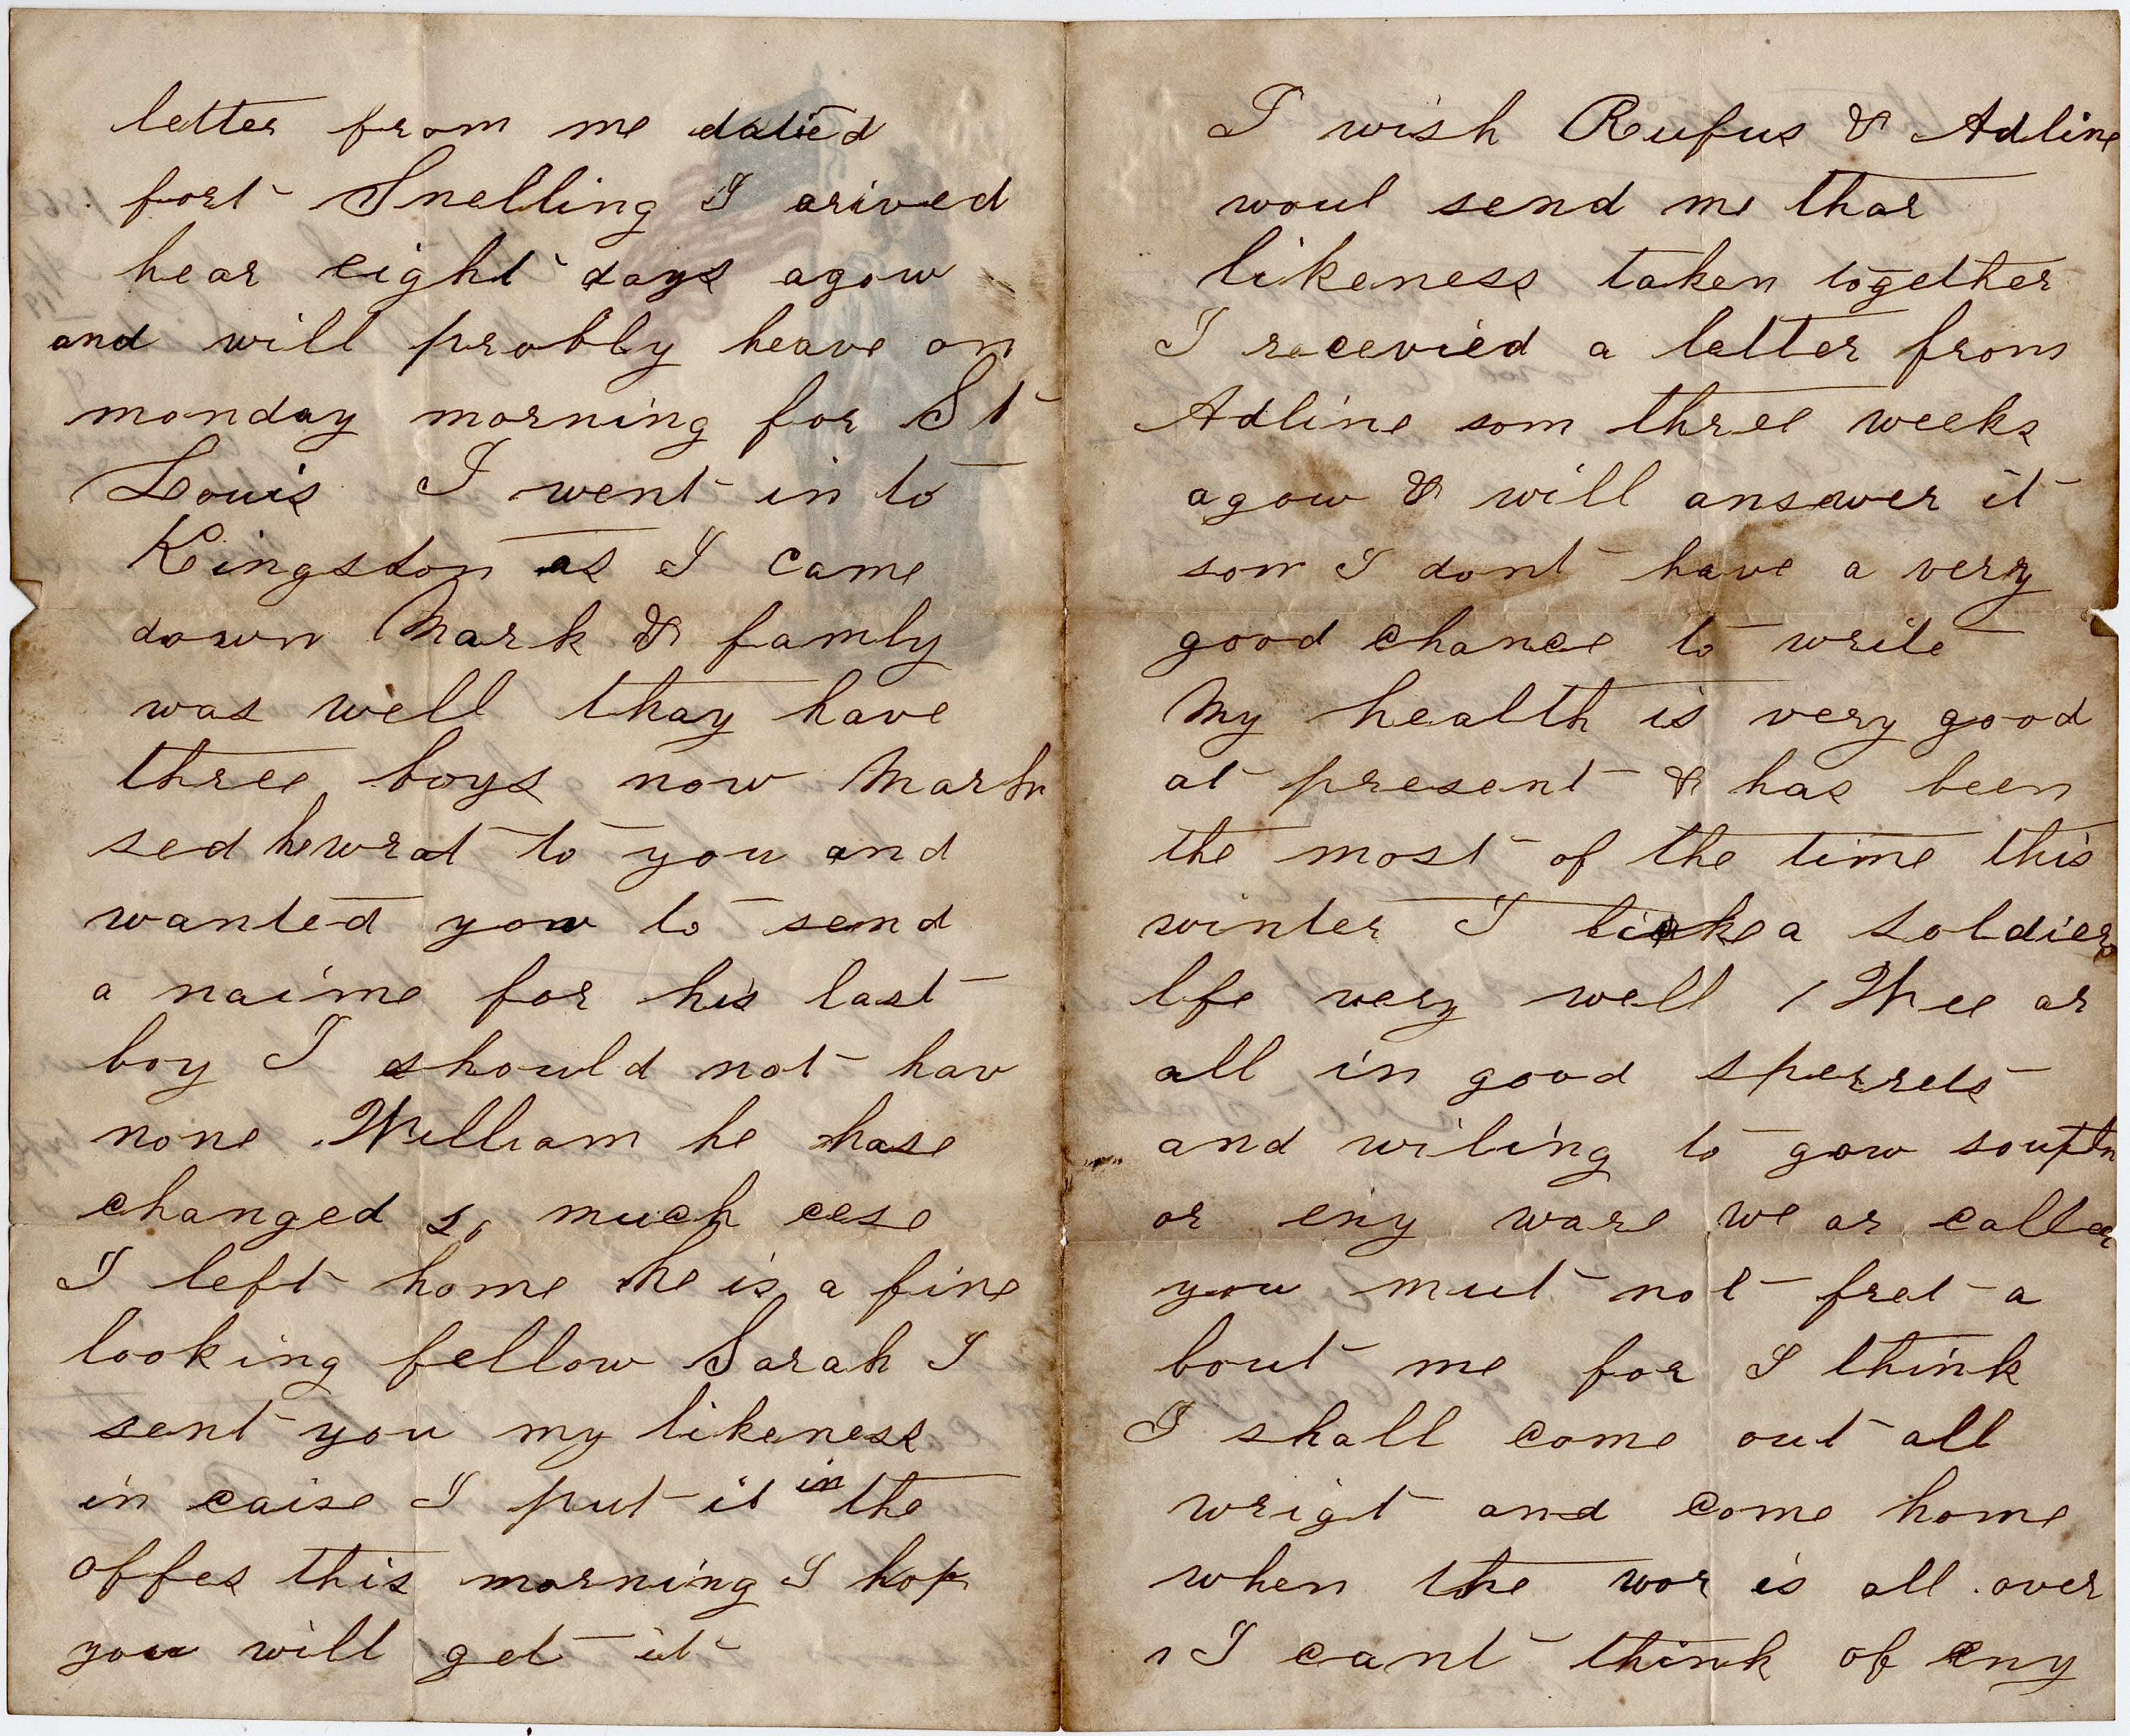 letter from me datied
fort Snelling I arived
hear eight days agow
and will probly heave on
monday morning for St
Louis I went in to
Kingston as I came
down Mark & famly
was well thay have
three boys now Mark
sed he wrat to you and
wanted yow to send
a naime for his last
boy I should not hav
none William he hase
changed so much cese
I left home he is a fine
looking fellow Sarah I
sent you my likeness
in caise I put it in the
offes this morning I hop
you will get it
I wish Rufus & Adline
woul send me thar
likeness taken together
I recevied a letter from
Adline som three weeks
agow & will answer it
son I dont have a very
good chance to write
My health is very good
at present & has been
the most of the time this
winter I like a soldiers
lfe very well Wee ar
all in good sperrets
and wiling to gow south
or eny ware we ar called
you mut not fret a
bout me for I think
I shall come out all
wrigt and come home
when the wor is all over
I cant think of eny